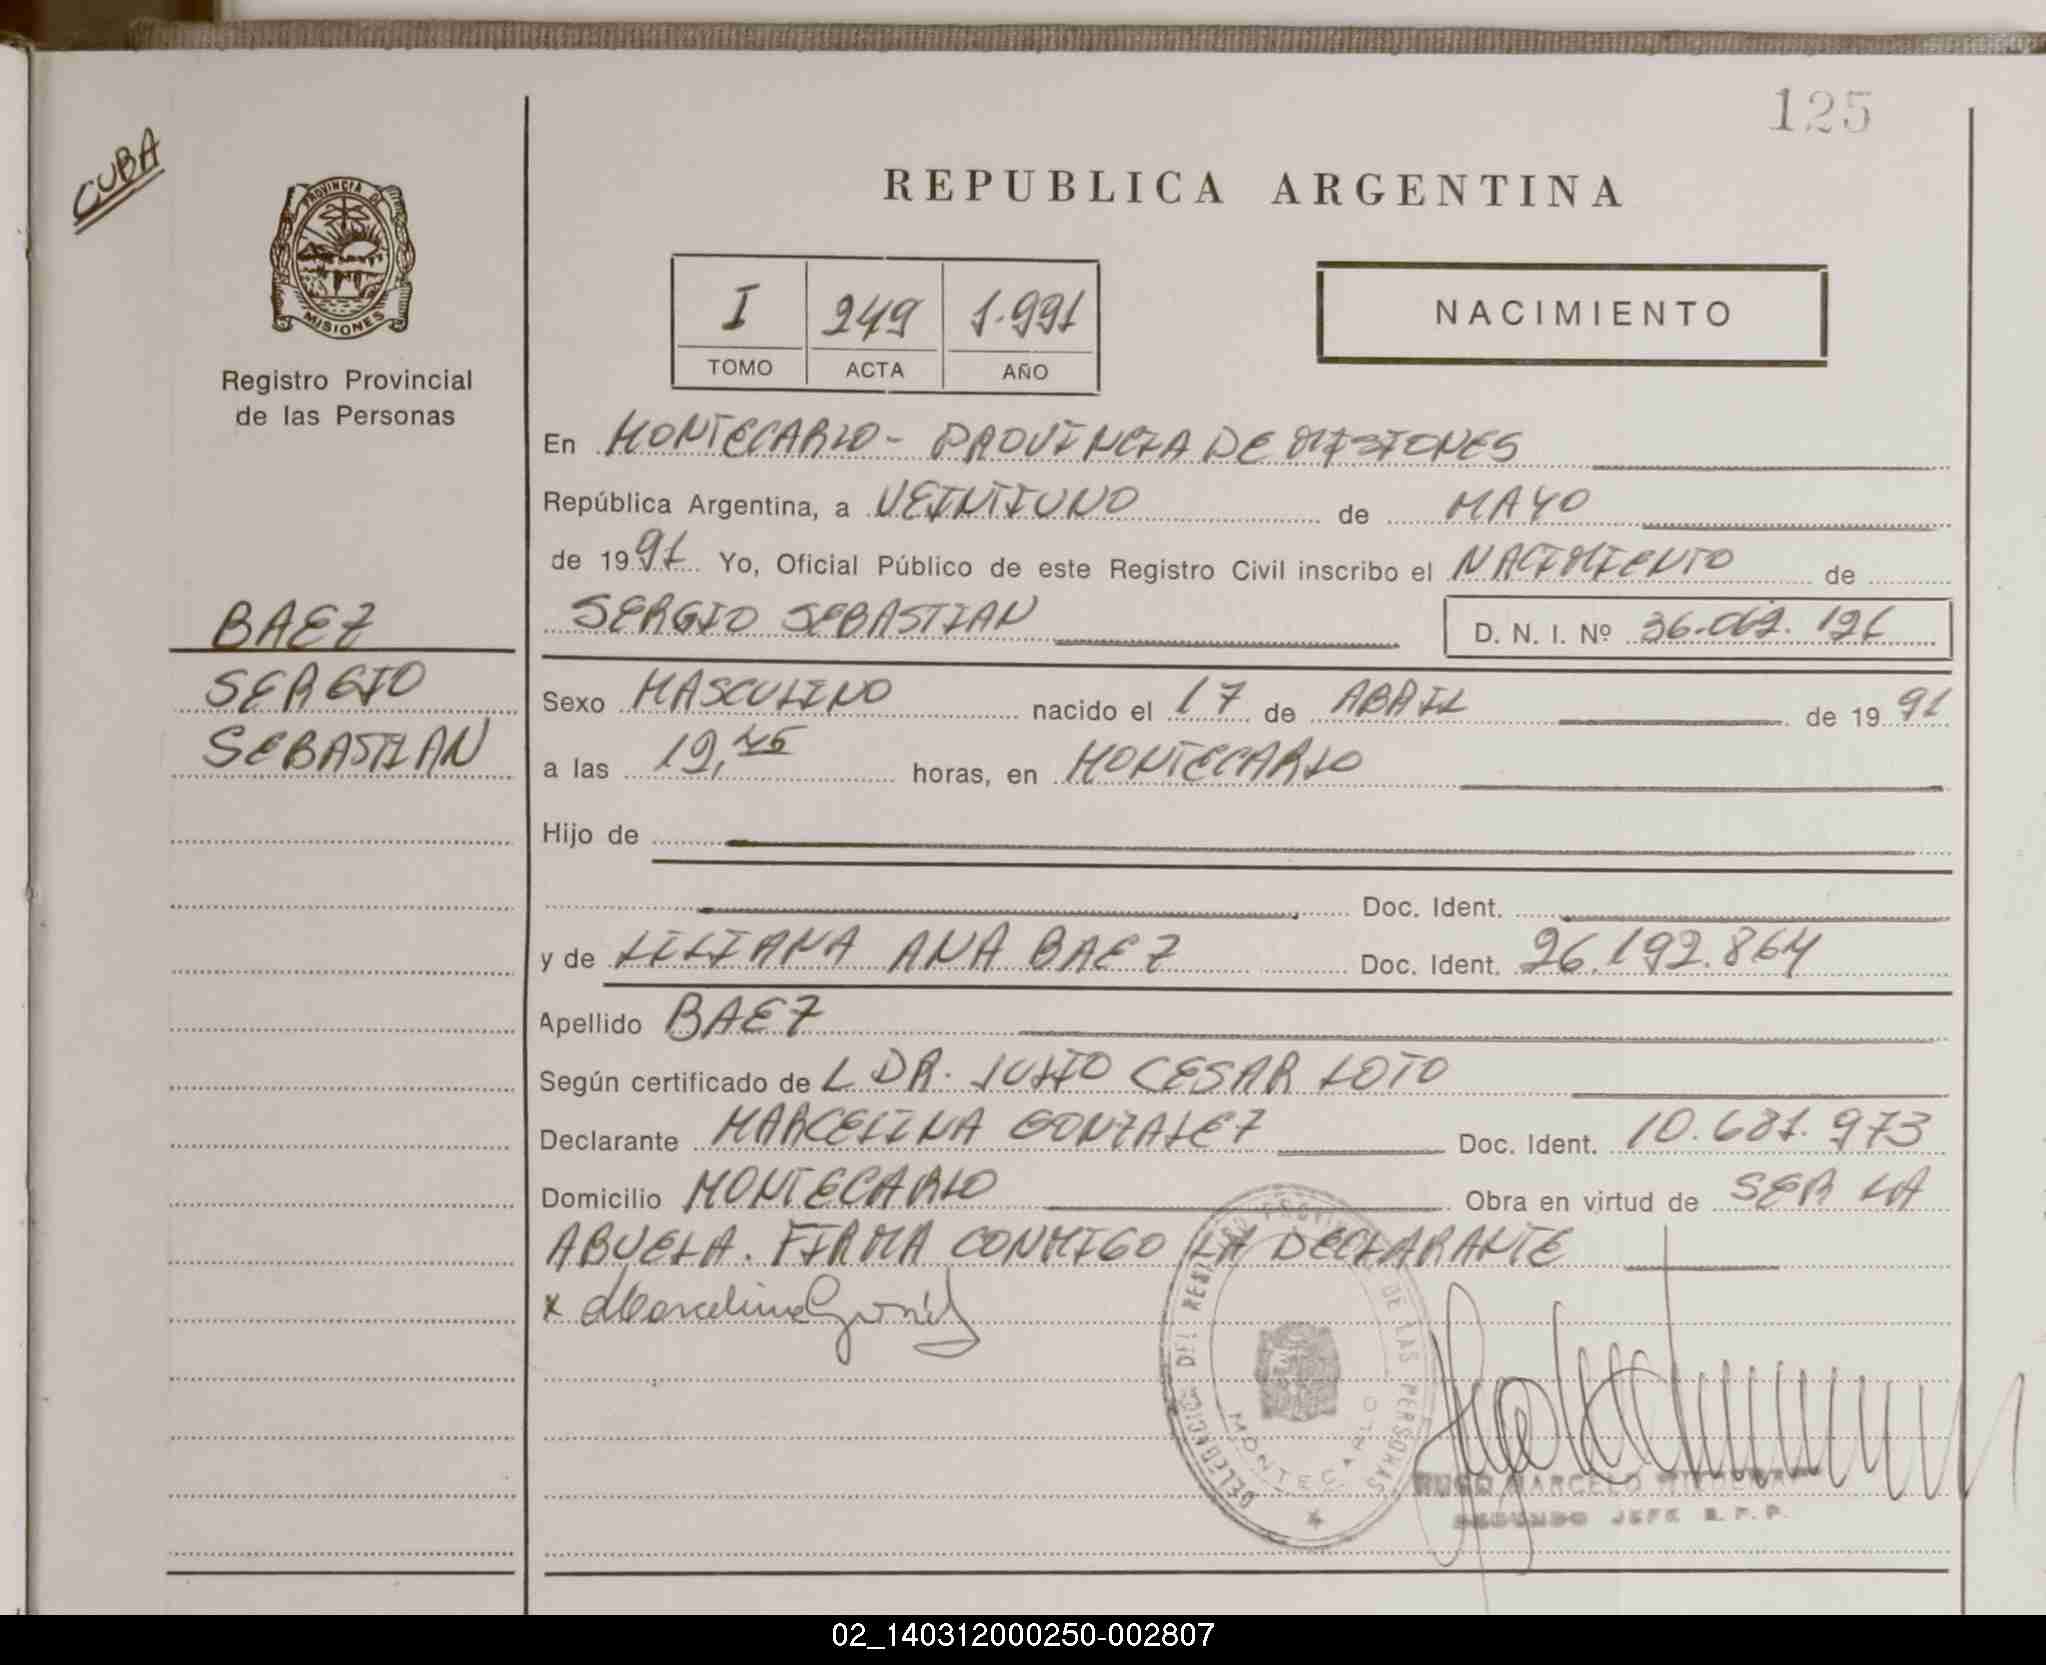 125
CUBA
PROVINCIA DE
MISIONES
Registro Provincial
de las Personas
REPUBLICA ARGENTINA
I 249 1.991
TOMO ACTA AÑO
NACIMIENTO
En MONTECARLO - PROVINCIA DE MISIONES
República Argentina, a VEINTIUNO de MAYO
de 1991 Yo, Oficial Público de este Registro Civil inscribo el NACIMIENTO de
SERGIO SEBASTIAN D. N. I. Nº
BAEZ
SERGIO
SEBASTIAN
Sexo MASCULINO nacido el 17 de ABRIL de 1991
a las 19,45 horas, en MONTECARLO
Hijo de
Doc. Ident.
y de LILIANA ANA BAEZ Doc. Ident. 26.192.864
Apellido BAEZ
Según certificado de L DR. JULIO CESAR LOTO
Declarante MARCELINA GONZALEZ Doc. Ident. 10.681.973
Domicilio MONTECARLO Obra en virtud de SER LA
ABUELA. FIRMA CONMIGO LA DECLARANTE
x Marcelina
DELEGACION DEL REGISTRO PROVINCIAL DE LAS PERSONAS
MONTECARLO
HUGO MARCELO
SEGUNDO JEFE R. P. P.
02_140312000250-002807